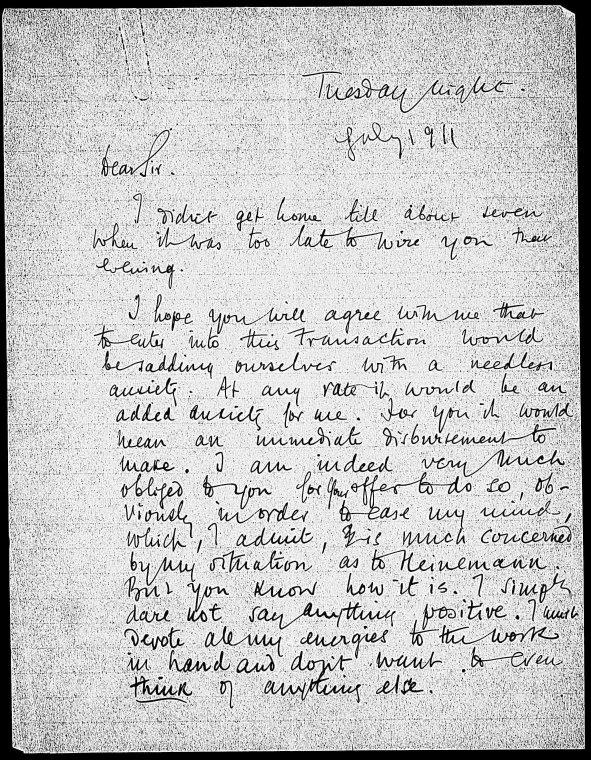 Tuesday night.
July 1911
Dear Sir.
I didn't get home till about seven
when it was too late to wire you that
evening.
I hope you will agree with me that
to enter into this transaction would
be saddling ourselves with a needless
anxiety. At any rate it would be an
added anxiety for me. For you it would
mean an immediate disbursement to
make. I am indeed very much
obliged to you for your offer to do so, ob-
viously in order to ease my mind,
which, I admit, is much concerned
by my situation as to Heinemann.
But you know how it is. I simply
dare not say anything positive. I must
devote all my energies to the work
in hand and don't want to even
think of anything else.